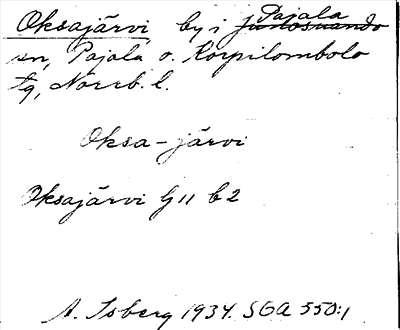 Oksajärvi by i Junosuando Pajala
sn, Pajala o. Korpilombolo
tg, Norrb. l.
Oksa-järvi
Oksajärvi G 11 b 2
A. Isberg 1934. SGA 550:1